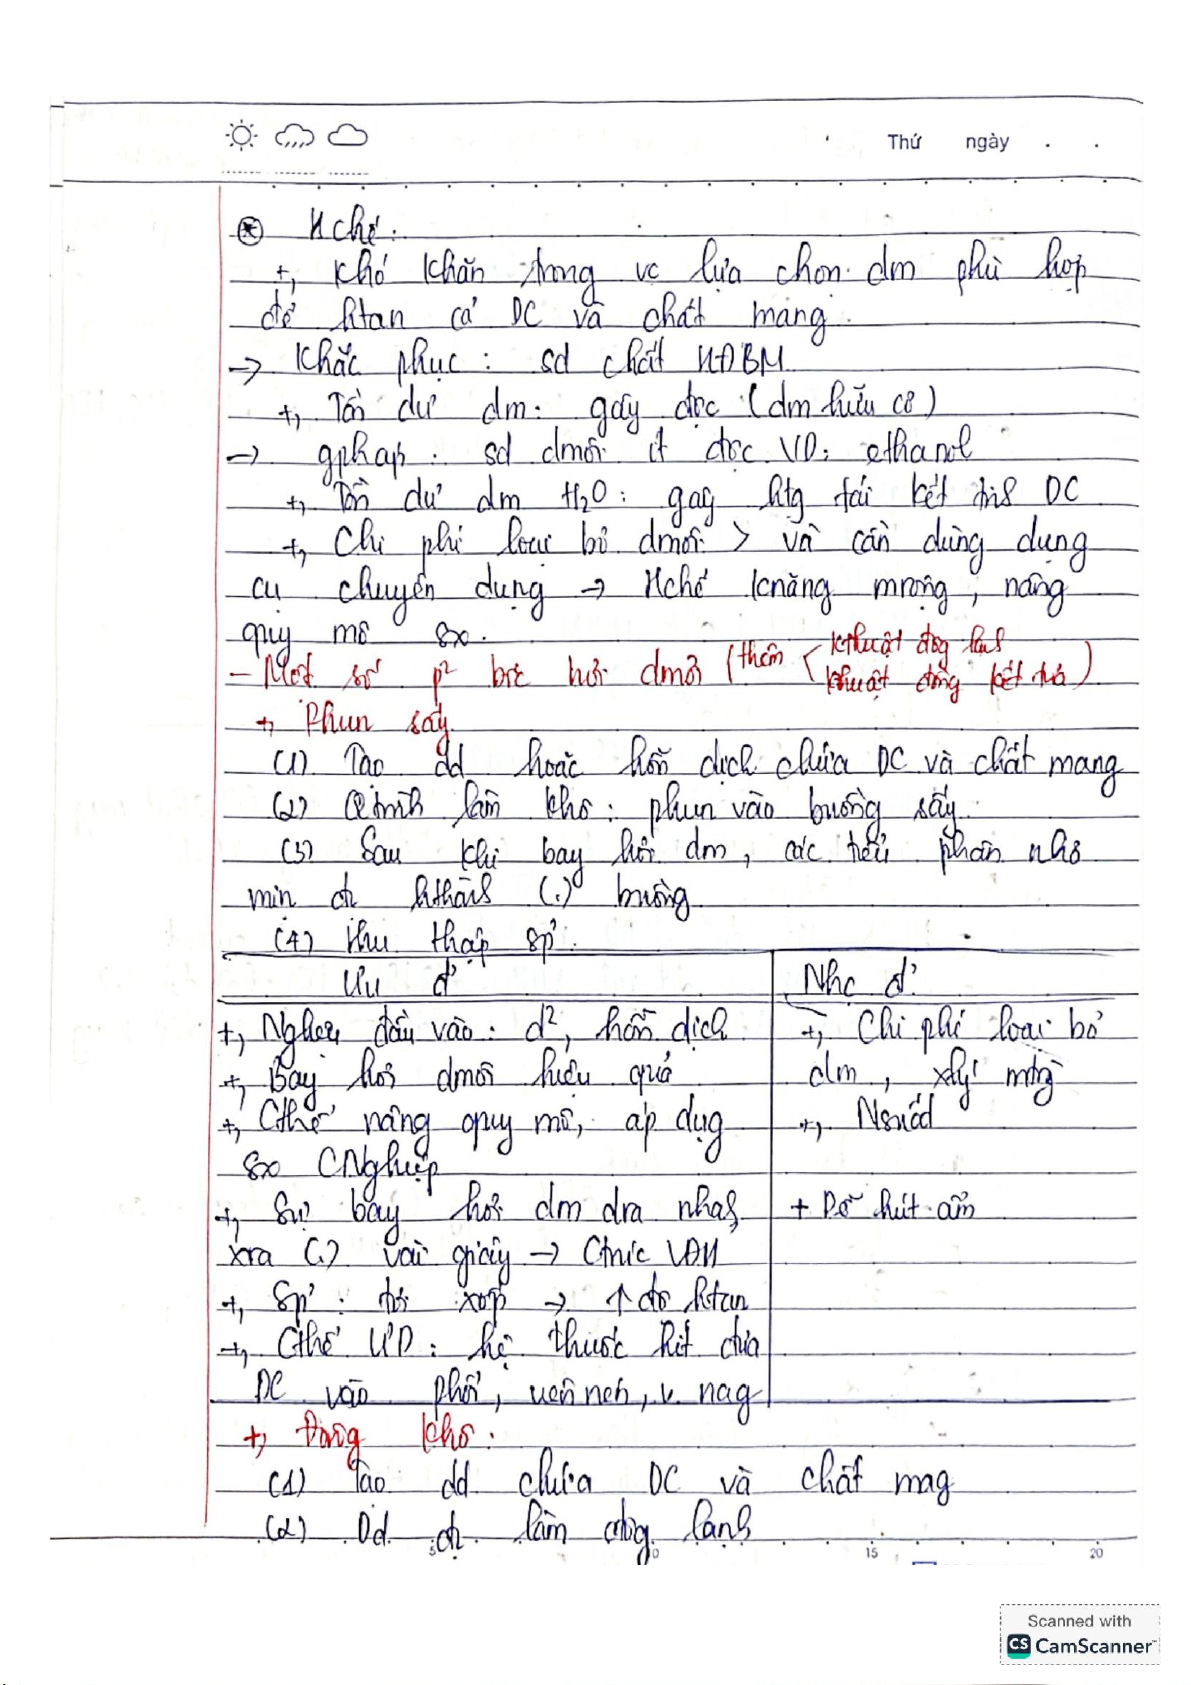 Thứ ngày
⊛ Hchế:
+, Khó khăn trong vc lựa chọn dm phù hợp
để htan cả DC và chất mang
→ Khắc phục: sd chất HĐBM
+, Tồn dư dm: gây độc (dm hữu cơ)
→ gpháp: sd dmôi ít độc VD: ethanol
+, Tồn dư dm H₂O: gây htg tái kết tinh DC
+, Chi phí loại bỏ dmôi > và cần dùng dụng
cụ chuyên dụng → Hchế knăng mrộng, nâng
quy mô sx.
- Một số p² bốc hơi dmôi (thêm < kthuật đông lạnh
kthuật đồng kết tủa)
+ Phun sấy
(1) Tạo dd hoặc hỗn dịch chứa DC và chất mang
(2) Qtrình làm khô: phun vào buồng sấy
(3) Sau khi bay hơi dm, các tiểu phân nhỏ
mịn đc hthành (.) buồng
(4) thu thập sp'.
Ưu đ' Nhc đ'
+, Nglieu đầu vào: d², hỗn dịch +, Chi phí loại bỏ
+, Bay hơi dmôi hiệu quả dm, xlý mtrg
+, Cthể nâng quy mô, áp dụg +, Nsuất
sx CNghiệp
+, Sự bay hơi dm dra nhah, + Dễ hút ẩm
xra (.) vài giây → Cthức VĐH
+, Sp': tơi xốp → ↑ độ htan
+, Cthể ƯD: hệ thuốc hít đưa
DC vào phổi, viên nén, v. nag
+, Đông khô:
(1) Tạo dd chứa DC và chất mag
(2) Dd đc làm đông lạnh
5 10 15 20
Scanned with
CS CamScanner